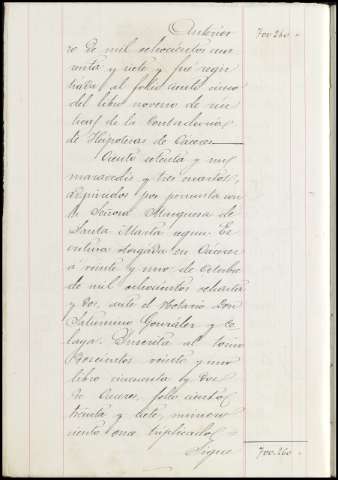 Anterior 700.260 "
ro de mil ochocientos cua-
renta y siete y fué regis-
trada al folio ciento cinco
del libro noveno de rús-
ticas de la Contaduría
de Hipotecas de Cáceres
Ciento setenta y un
maravedis y tres cuartos,
adquiridos por permuta con
la Señora Marquesa de
Santa Marta según Es-
critura otorgada en Cáceres
á veinte y uno de Octubre
de mil ochocientos sesenta
y dos, ante el Notario Don
Saturnino González y Ce-
laya. Inscrita al tomo
trescientos veinte y uno
libro cincuenta y dos
de Cáceres, folio ciento
treinta y siete, número
ciento once triplicado
Sigue 700.260 "